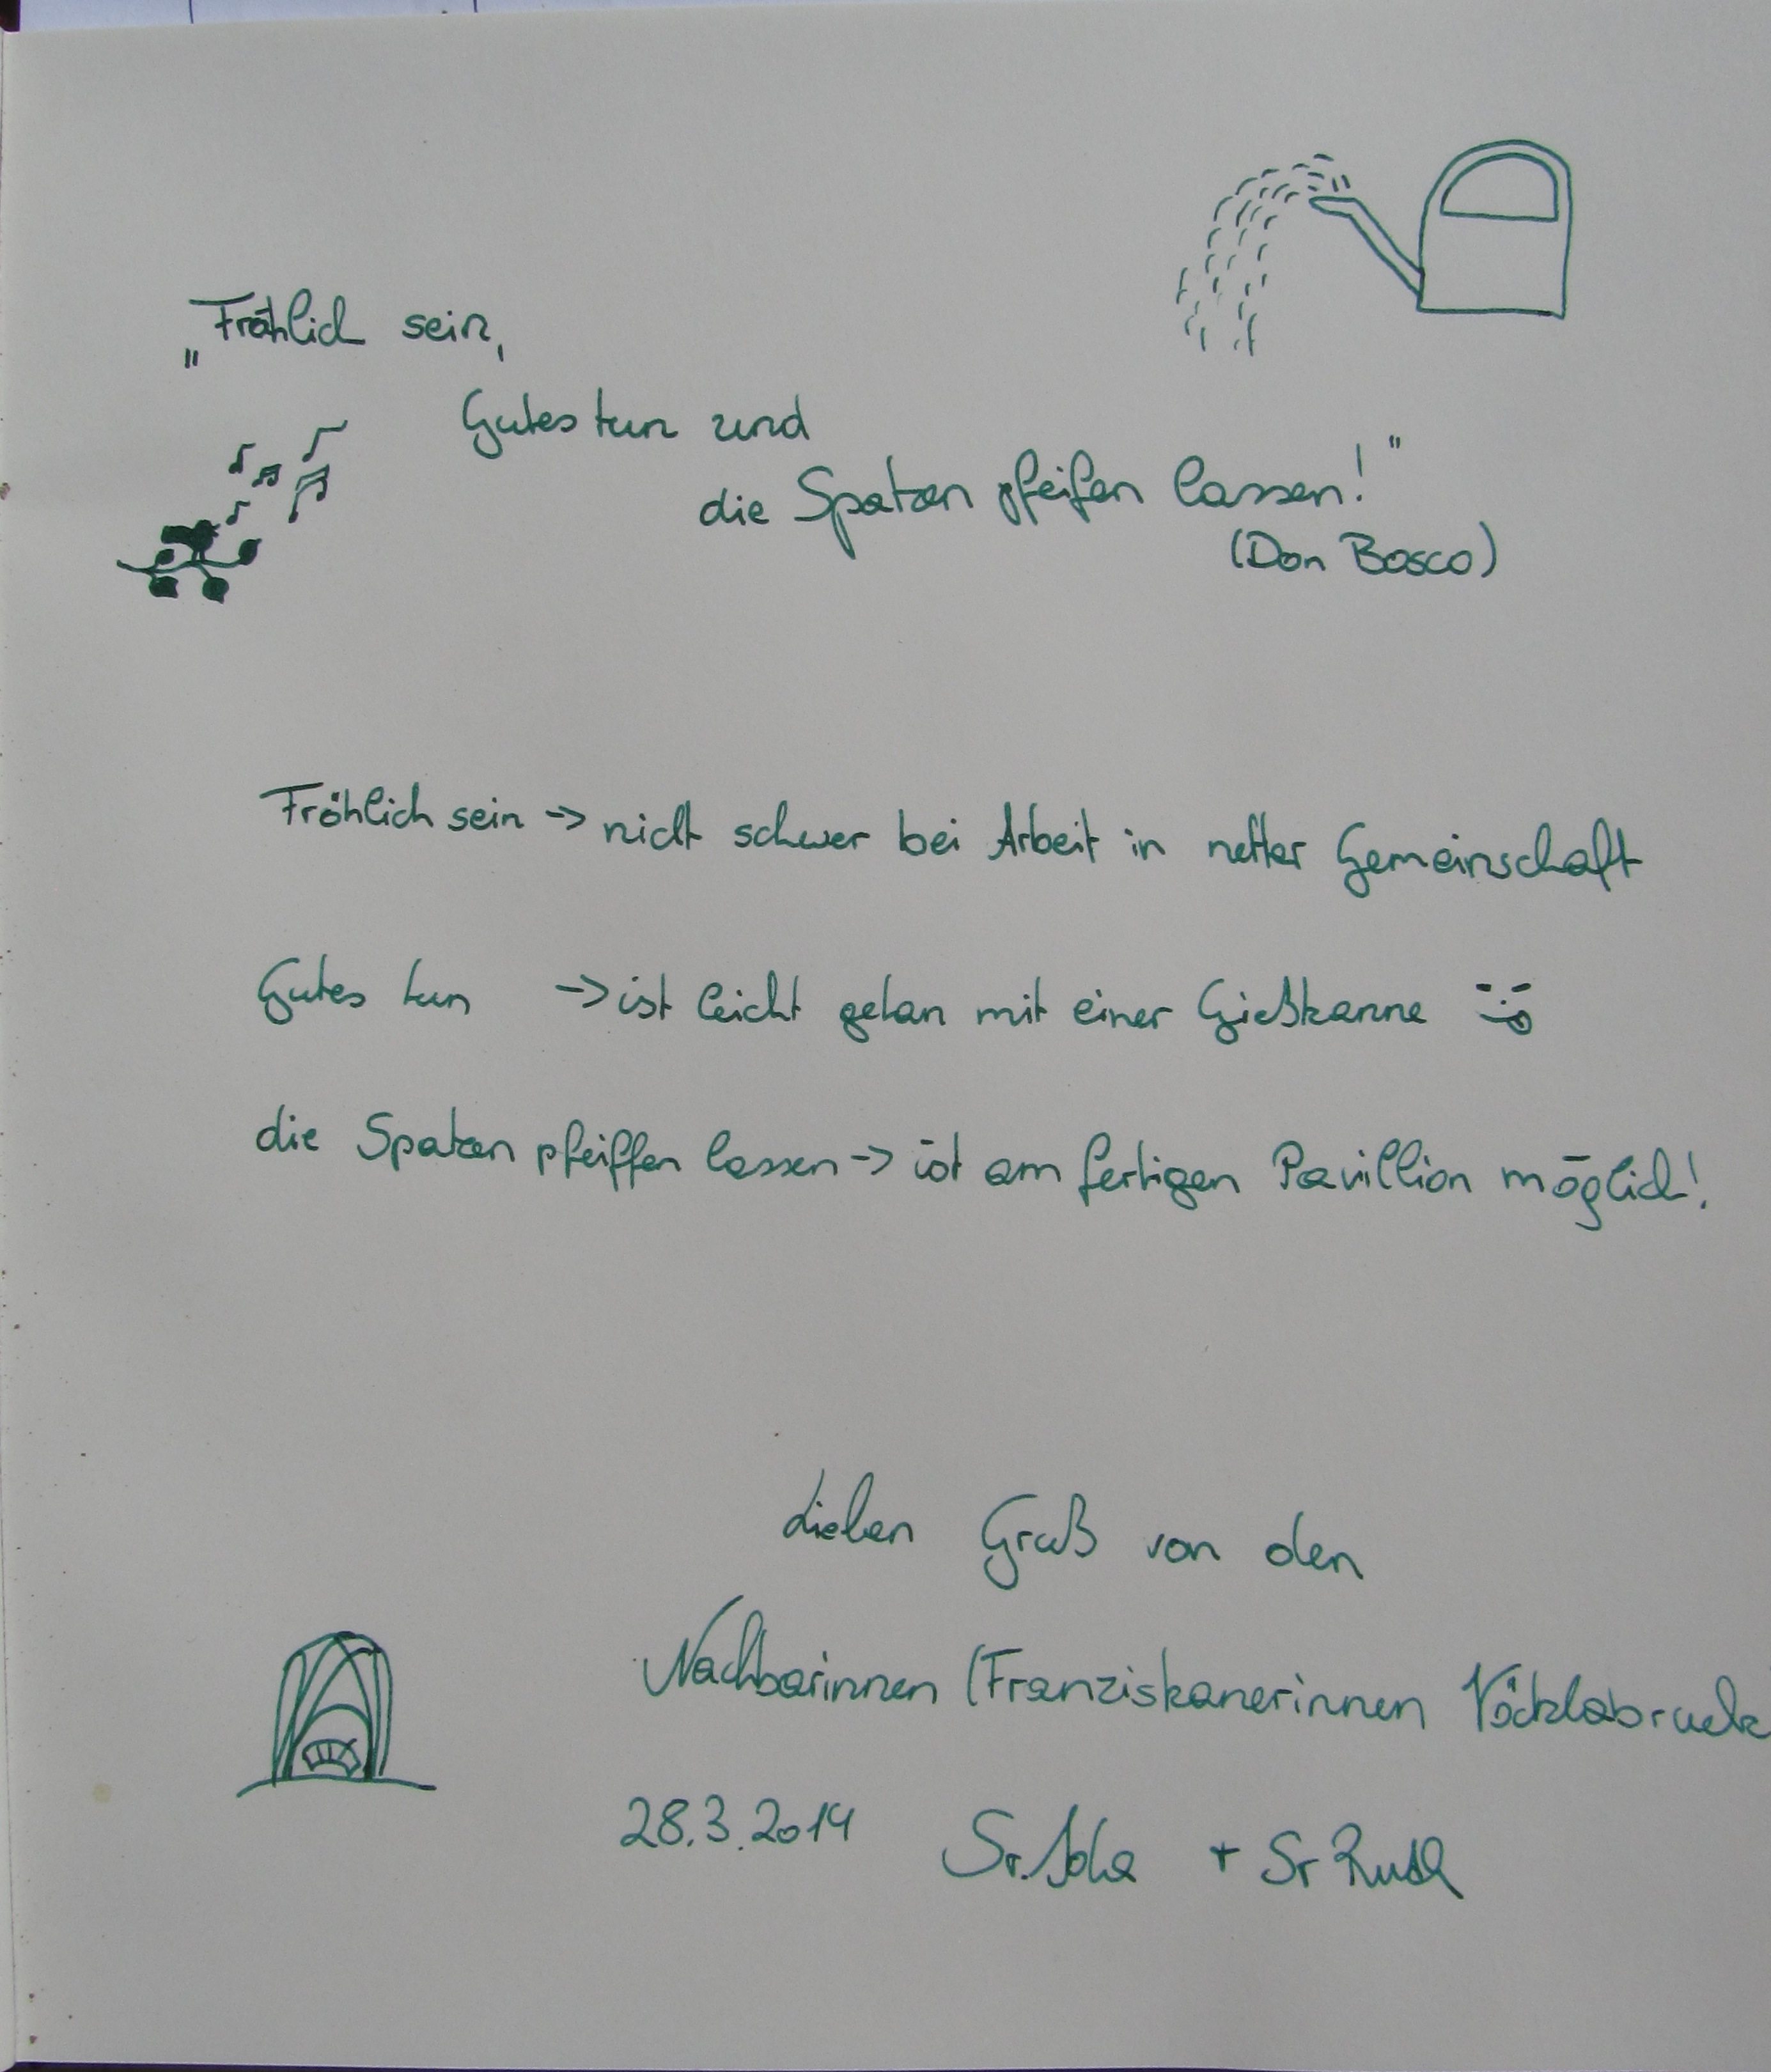 „Fröhlich sein,
Gutes tun und
die Spatzen pfeifen lassen!"
(Don Bosco)
Fröhlich sein -> nicht schwer bei Arbeit in netter Gemeinschaft
Gutes tun -> ist leicht getan mit einer Gießkanne
die Spatzen pfeiffen lassen -> ist am fertigen Pavillion möglich!
Lieben Gruß von den
Nachbarinnen (Franziskanerinnen Vöcklabruck
28.3.2014 Sr. + Sr Ruth